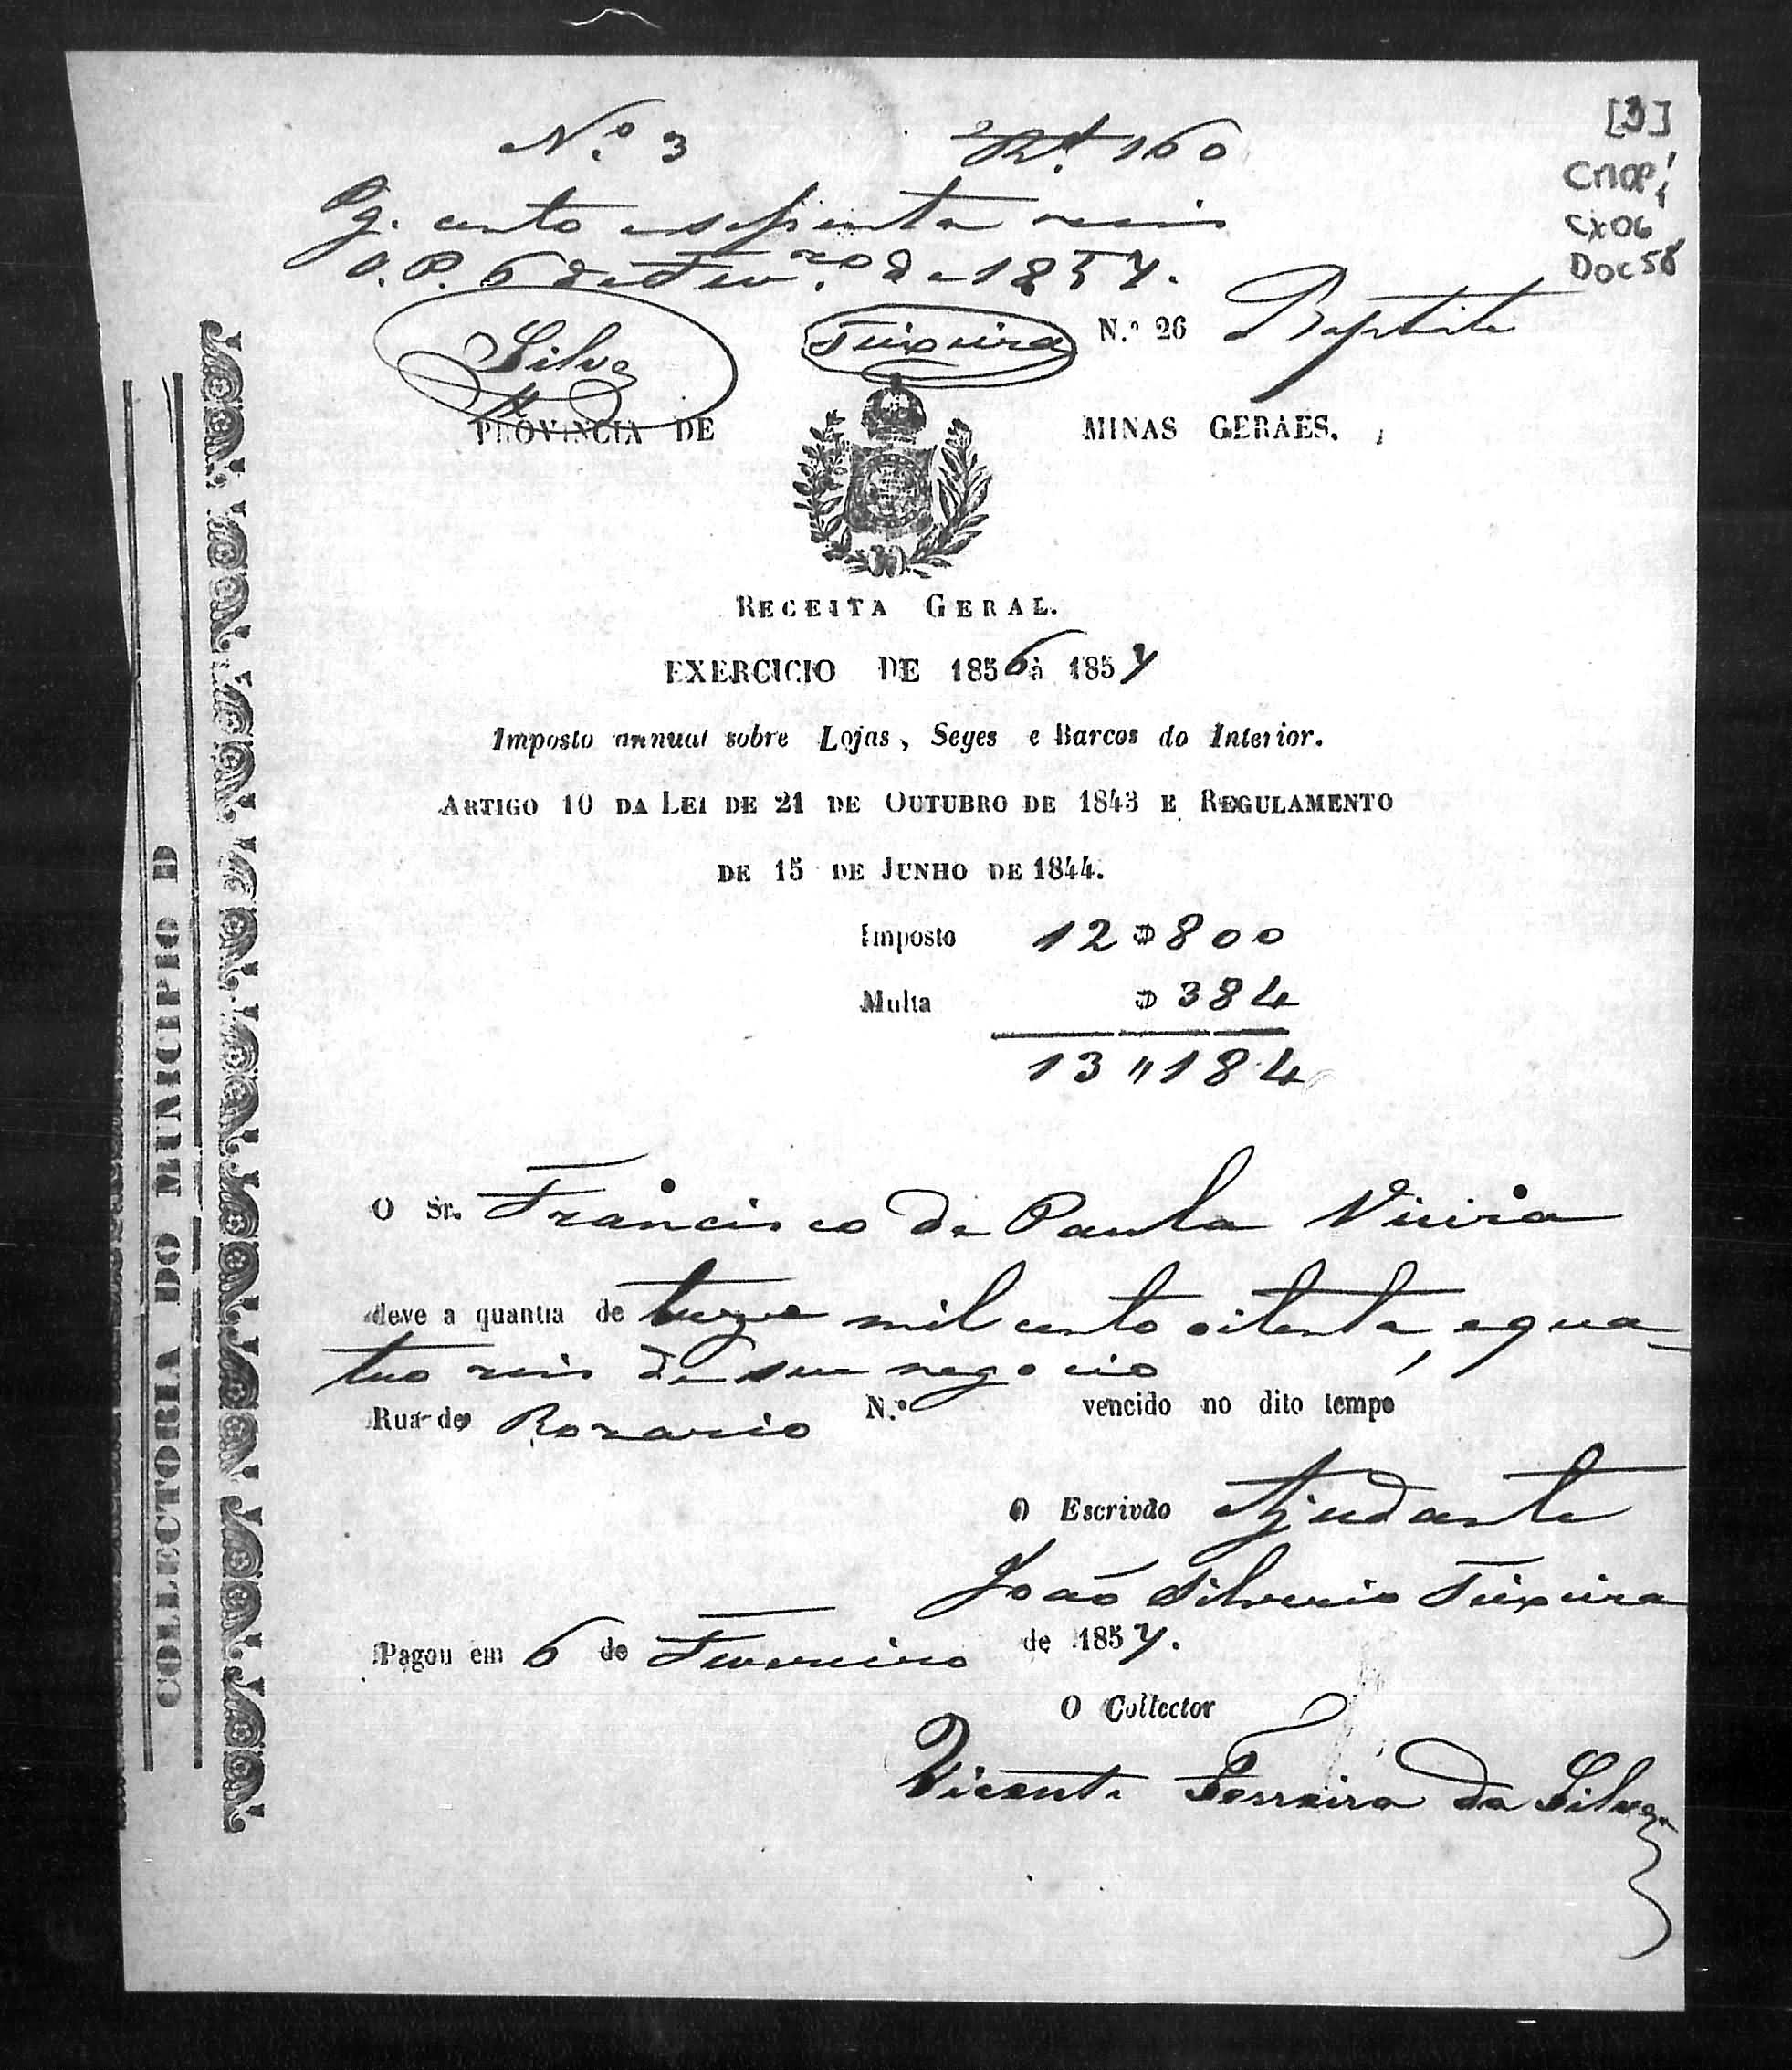 [3]
CMOP
Cx06
Doc 58
N.º 3 Rs 160
Pg. cento e sessenta reis
O. P. 6 de Fevr.º de 1857.
Silva Teixeira N.º 26 Baptista
PROVINCIA DE MINAS GERAES.
RECEITA GERAL.
EXERCICIO DE 1856 á 1857
Imposto annual sobre Lojas, Seges e Barcos do Interior.
ARTIGO 10 DA LEI DE 21 DE OUTUBRO DE 1843 E REGULAMENTO
DE 15 DE JUNHO DE 1844.
Imposto 12$800
Multa $384
13"184
O Sr. Francisco de Paula Vieira
deve a quantia de treze mil cento oitenta, e qua-
tro reis de seu negocio
Rua do Rozario N.º vencido no dito tempo
O Escrivão Ajudante
João Silverio Teixeira
Pagou em 6 de Fevereiro de 1857.
O Collector
Vicente Ferreira da Silva
COLLECTORIA DO MUNICIPIO D